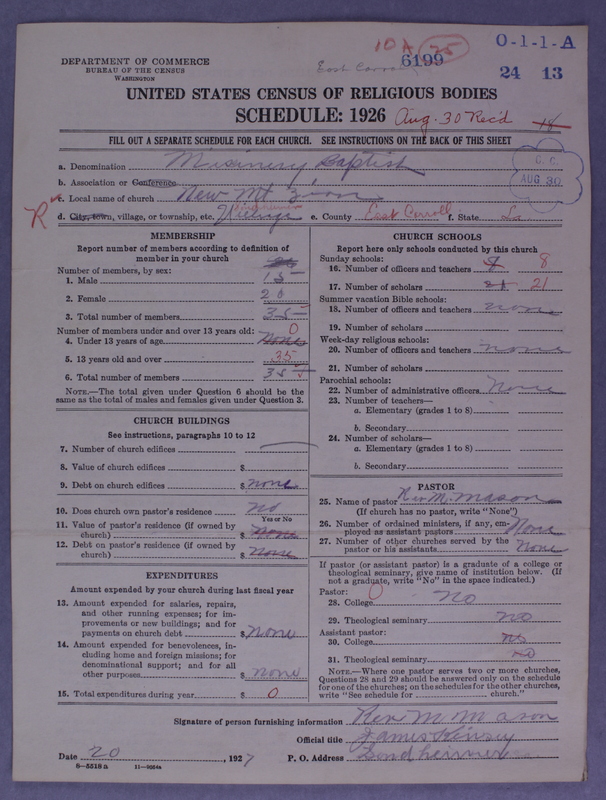 10 A 25
O-1-1-A
East Carroll 6199
24 13
DEPARTMENT OF COMMERCE
BUREAU OF THE CENSUS
WASHINGTON
UNITED STATES CENSUS OF RELIGIOUS BODIES
SCHEDULE: 1926 Aug. 30 Rec'd 18
FILL OUT A SEPARATE SCHEDULE FOR EACH CHURCH. SEE INSTRUCTIONS ON THE BACK OF THIS SHEET
a. Denomination Missinery Baptist
b. Association or Conference
AUG 30
R c. Local name of church New Mt Zion
d. City, town, village, or township, etc. e. County East Carroll f. State La
MEMBERSHIP
Report number of members according to definition of
member in your church
Number of members, by sex:
1. Male 15
2. Female 20
3. Total number of members 35
Number of members under and over 13 years old: 0
4. Under 13 years of age None
5. 13 years old and over 35
6. Total number of members 35
NOTE.—The total given under Question 6 should be
same as the total of males and females given under Question 3.
CHURCH BUILDINGS
See instructions, paragraphs 10 to 12
7. Number of church edifices
8. Value of church edifices $
9. Debt on church edifices $ none
10. Does church own pastor's residence? No
Yes or No
11. Value of pastor's residence (if owned by
church) $ None
12. Debt on pastor's residence (if owned by
church) $ None
EXPENDITURES
Amount expended by your church during last fiscal year
13. Amount expended for salaries, repairs,
and other running expenses; for im-
provements or new buildings; and for
payments on church debt $ none
14. Amount expended for benevolences, in-
cluding home and foreign missions; for
denominational support; and for all
other purposes $ none
15. Total expenditures during year $ 0
CHURCH SCHOOLS
Report here only schools conducted by this church
Sunday schools:
16. Number of officers and teachers 8
17. Number of scholars 21 21
Summer vacation Bible schools:
18. Number of officers and teachers none
19. Number of scholars
Week-day religious schools:
20. Number of officers and teachers none
21. Number of scholars
Parochial schools:
22. Number of administrative officers None
23. Number of teachers—
a. Elementary (grades 1 to 8)
b. Secondary
24. Number of scholars—
a. Elementary (grades 1 to 8)
b. Secondary
PASTOR
25. Name of pastor Rev M. Mason
(If church has no pastor, write "None")
26. Number of ordained ministers, if any, em-
ployed as assistant pastors None
27. Number of other churches served by the
pastor or his assistants None
If pastor (or assistant pastor) is a graduate of a college or
theological seminary, give name of institution below. (If
not a graduate, write "No" in the space indicated.)
Pastor: 0
28. College No
29. Theological seminary No
Assistant pastor:
30. College No
31. Theological seminary No
NOTE.—Where one pastor serves two or more churches,
Questions 28 and 29 should be answered only on the schedule
for one of the churches; on the schedules for the other churches,
write "See schedule for church."
Signature of person furnishing information Rev M Mason
Official title James Kinsey
Date 20, 1927 P. O. Address Sondheimer
8—5518 a 11—9054a